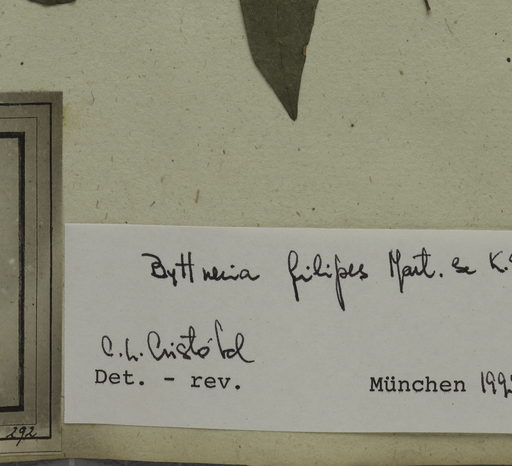 Byttneria filipes Mart. ex K.
C.L. Cristóbal
Det. - rev.
München 199
292